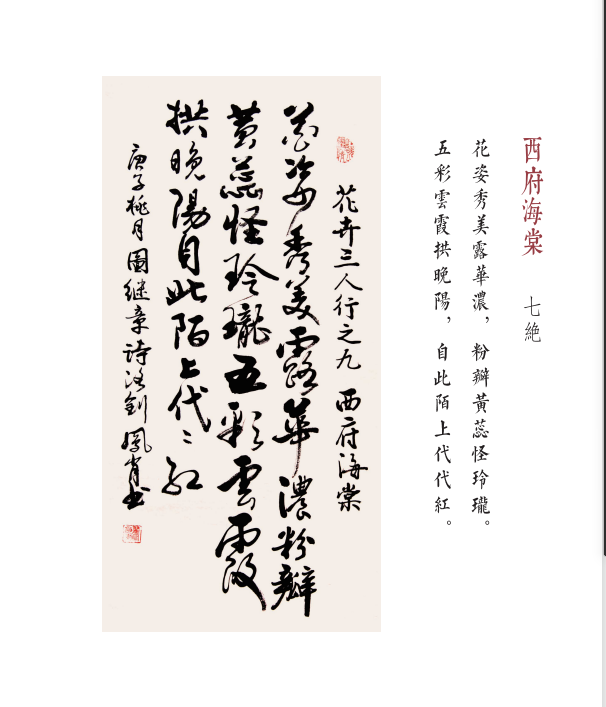 西府海棠 七絶
花姿秀美露華濃，粉瓣黃蕊怪玲瓏。
五彩雲霞拱晚陽，自此陌上代代紅。
花卉三人行之九 西府海棠
花姿秀美露華濃粉瓣
黄蕊怪玲瓏五彩雲霞
拱晚陽自此陌上代〻红
庚子桃月 継章诗 鳳肖书